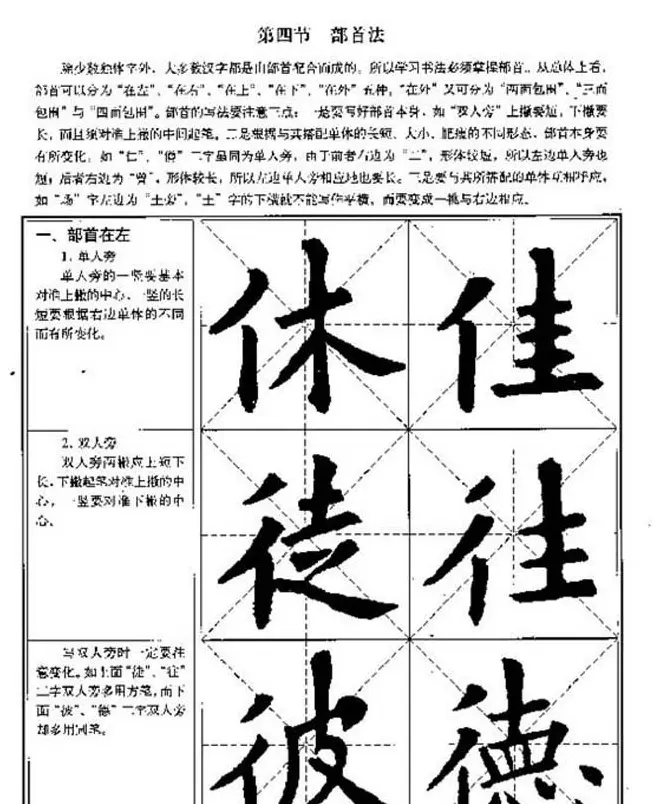 第四节 部首法
除少数独体字外，大多数汉字都是由部首配合而成的。所以学习书法必须掌握部首。从总体上看，
部首可以分为“在左”、“在右”、“在上”、“在下”、“在外”五种。“在外”又可分为“两面包围”、“三面
包围”与“四面包围”。部首的写法要注意三点：一是要写好部首本身，如“双人旁”上撇要短，下撇要
长，而且须对准上撇的中间起笔。二是根据与其搭配单体的长短、大小、肥瘦的不同形态，部首本身要
有所变化，如“仁”、“僧”二字虽同为单人旁，由于前者右边为“二”，形体较短，所以左边单人旁也
短；后者右边为“曾”，形体较长，所以左边单人旁相应地也要长。三是要与其所搭配的单体互相呼应，
如“场”字左边为“土旁”，“土”字的下横就不能写作平横，而要变成一挑与右边相应。
一、部首在左
1. 单人旁
单人旁的一竖要基本
对准上撇的中心，一竖的长
短要根据右边单体的不同
而有所变化。
休 佳
2. 双人旁
双人旁两撇应上短下
长，下撇起笔对准上撇的中
心，一竖要对准下撇的中
心。
徒 往
写双人旁时一定要注
意变化。如上面“徒”、“往”
二字双人旁多用方笔，而下
面“彼”、“德”二字双人旁
却多用圆笔。
彼 德